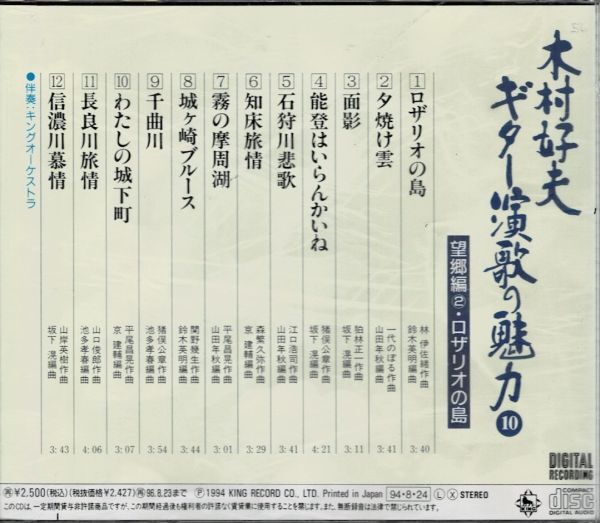 木村好夫
ギター演歌の魅力⑩
望郷編②・ロザリオの島
1 ロザリオの島
林 伊佐緒作曲
鈴木英明編曲
3:40
2 夕焼け雲
一代のぼる作曲
山田年秋編曲
3:41
3 面影
狛林正一作曲
坂下 滉編曲
3:11
4 能登はいらんかいね
猪俣公章作曲
坂下 滉編曲
4:21
5 石狩川悲歌
江口浩司作曲
山田年秋編曲
3:41
6 知床旅情
森繁久弥作曲
京 建輔編曲
3:29
7 霧の摩周湖
平尾昌晃作曲
山田年秋編曲
3:01
8 城ヶ崎ブルース
関野幾生作曲
鈴木英明編曲
3:44
9 千曲川
猪俣公章作曲
池多孝春編曲
3:54
10 わたしの城下町
平尾昌晃作曲
京 建輔編曲
3:07
11 長良川旅情
山口俊郎作曲
池多孝春編曲
4:06
12 信濃川慕情
山岸英樹作曲
坂下 滉編曲
3:43
●伴奏:キングオーケストラ
DIGITAL
RECORDING
COMPACT
disc
DIGITAL AUDIO
再¥2,500(税込)(税抜価格¥2,427)再96.8.23まで Ⓟ1994 KING RECORD CO., LTD. Printed in Japan 94・8・24 Ⓛ Ⓧ STEREO
このCDは、一定期間貸与非許諾商品ですが、この期間経過後も権利者の許諾なく賃貸業に使用することを禁じます。また、無断録音は法律で禁じられています。